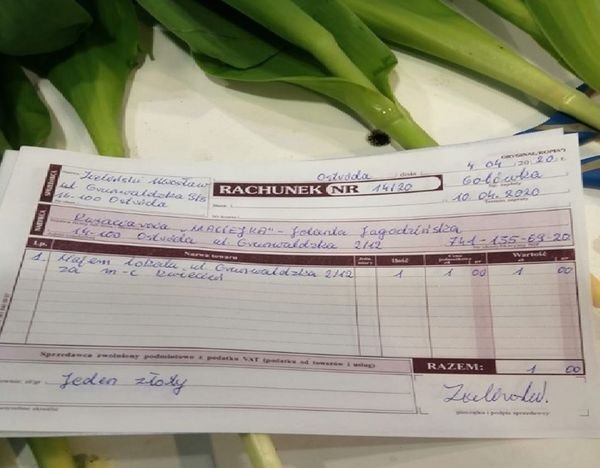 ORYGINAŁ/KOPIA
SPRZEDAWCA
Zieliński Mirosław
ul Grunwaldzka
14-100 Ostróda
Ostróda dnia 4.04 2020 r.
RACHUNEK NR 14/20
Gotówka
10.04.2020
NABYWCA
"MACIEJKA" - Jolanta Jagodzińska
14-100 Ostróda ul. Grunwaldzka 2/12
741-135-69-20
Lp. Nazwa towaru Ilość Cena Wartość
1. Najem lokalu ul. Grunwaldzka 2/12 1 1 00 1 00
za m-c kwiecień
Sprzedawca zwolniony podmiotowo z podatku VAT (podatku od towarów i usług)
RAZEM: 1 00
Słownie: zł/gr jeden złoty
pieczątka i podpis sprzedawcy